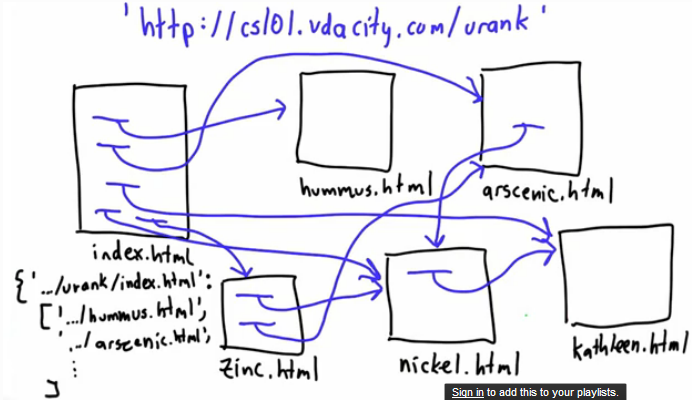 'http://cs101.udacity.com/urank'
hummus.html
arscenic.html
index.html
{'.../urank/index.html':
['.../hummus.html',
'.../arscenic.html',
⋮
]
zinc.html
nickel.html
kathleen.html
Sign in to add this to your playlists.